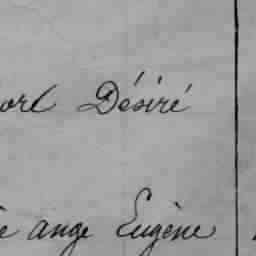 Désiré
ange Eugène